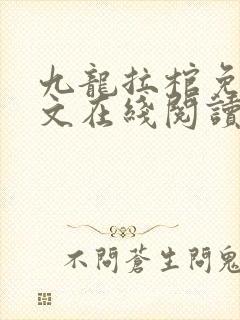 九龍拉棺免
文在綫閱讀
不問蒼生問鬼